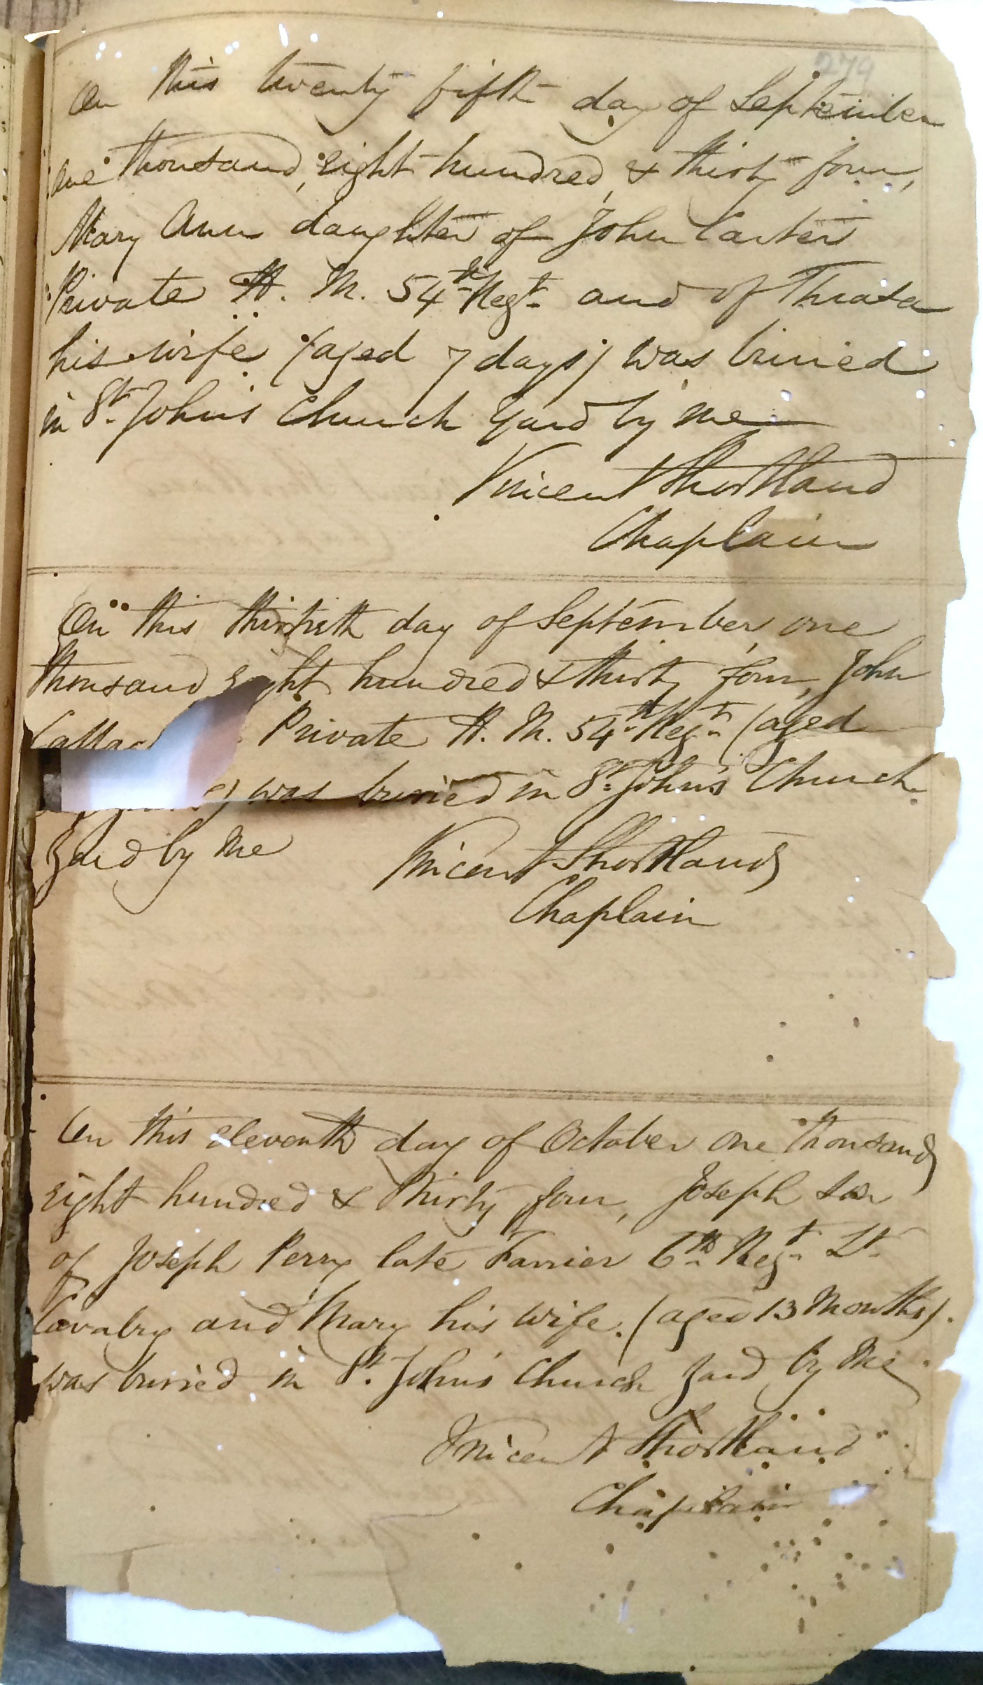 279
On this twenty fifth day of September
one thousand, eight hundred, & thirty four,
Mary Ann daughter of John Carter
Private H. M. 54th Regt and of
his wife (aged 7 days) was buried
in St. John's Church Yard by me
Vincent Shortland
Chaplain
On this thirtieth day of September one
thousand eight hundred & thirty four, John
Private H. M. 54th Regt (aged
was buried in St. John's Church
Yard by me
Vincent Shortland
Chaplain
On this eleventh day of October one thousand
eight hundred & thirty four, Joseph son
of Joseph Perry late Farrier 6th Regt Lt
Cavalry and Mary his wife. (aged 13 Months).
was buried in St. John's Church Yard by me
Vincent Shortland
Chaplain